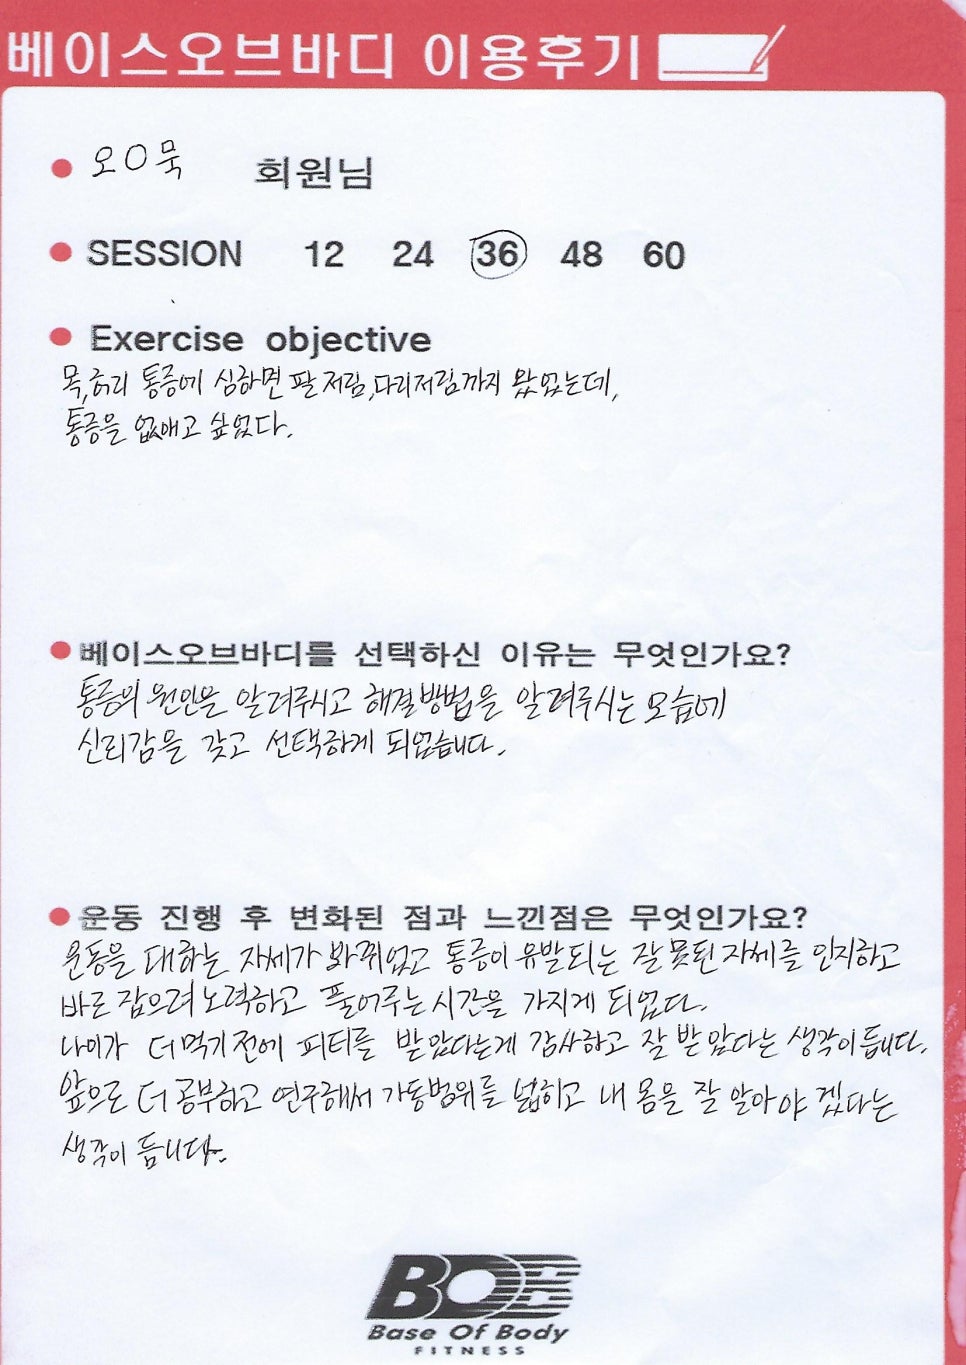 베이스오브바디 이용후기
오○묵 회원님
SESSION 12 24 36 48 60
Exercise objective
목,허리 통증에 심하면 팔저림,다리저림까지 왔었는데,
통증을 없애고 싶었다.
베이스오브바디를 선택하신 이유는 무엇인가요?
통증의 원인을 알려주시고 해결방법을 알려주시는 모습에
신뢰감을 갖고 선택하게 되었습니다.
운동 진행 후 변화된 점과 느낀점은 무엇인가요?
운동을 대하는 자세가 바뀌었고 통증이 유발되는 잘못된 자세를 인지하고
바로 잡으려 노력하고 풀어주는 시간을 가지게 되었다.
나이가 더 먹기 전에 피티를 받았다는게 감사하고 잘 받았다는 생각이 듭니다.
앞으로 더 공부하고 연구해서 가동범위를 넓히고 내 몸을 잘 알아야 겠다는
생각이 듭니다.
BOB
Base Of Body
FITNESS